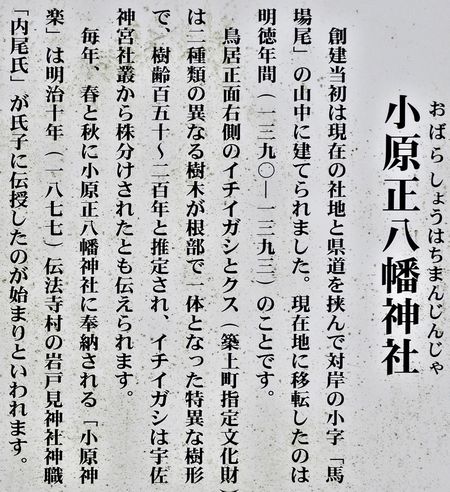 おばらしょうはちまんじんじゃ
小原正八幡神社
創建当初は現在の社地と県道を挟んで対岸の小字「馬
場尾」の山中に建てられました。現在地に移転したのは
明徳年間（一三九〇―一三九三）のことです。
鳥居正面右側のイチイガシとクス（築上町指定文化財）
は二種類の異なる樹木が根部で一体となった特異な樹形
で、樹齢百五十～二百年と推定され、イチイガシは宇佐
神宮社叢から株分けされたとも伝えられます。
毎年、春と秋に小原正八幡神社に奉納される「小原神
楽」は明治十年（一八七七）伝法寺村の岩戸見神社神職
「内尾氏」が氏子に伝授したのが始まりといわれます。